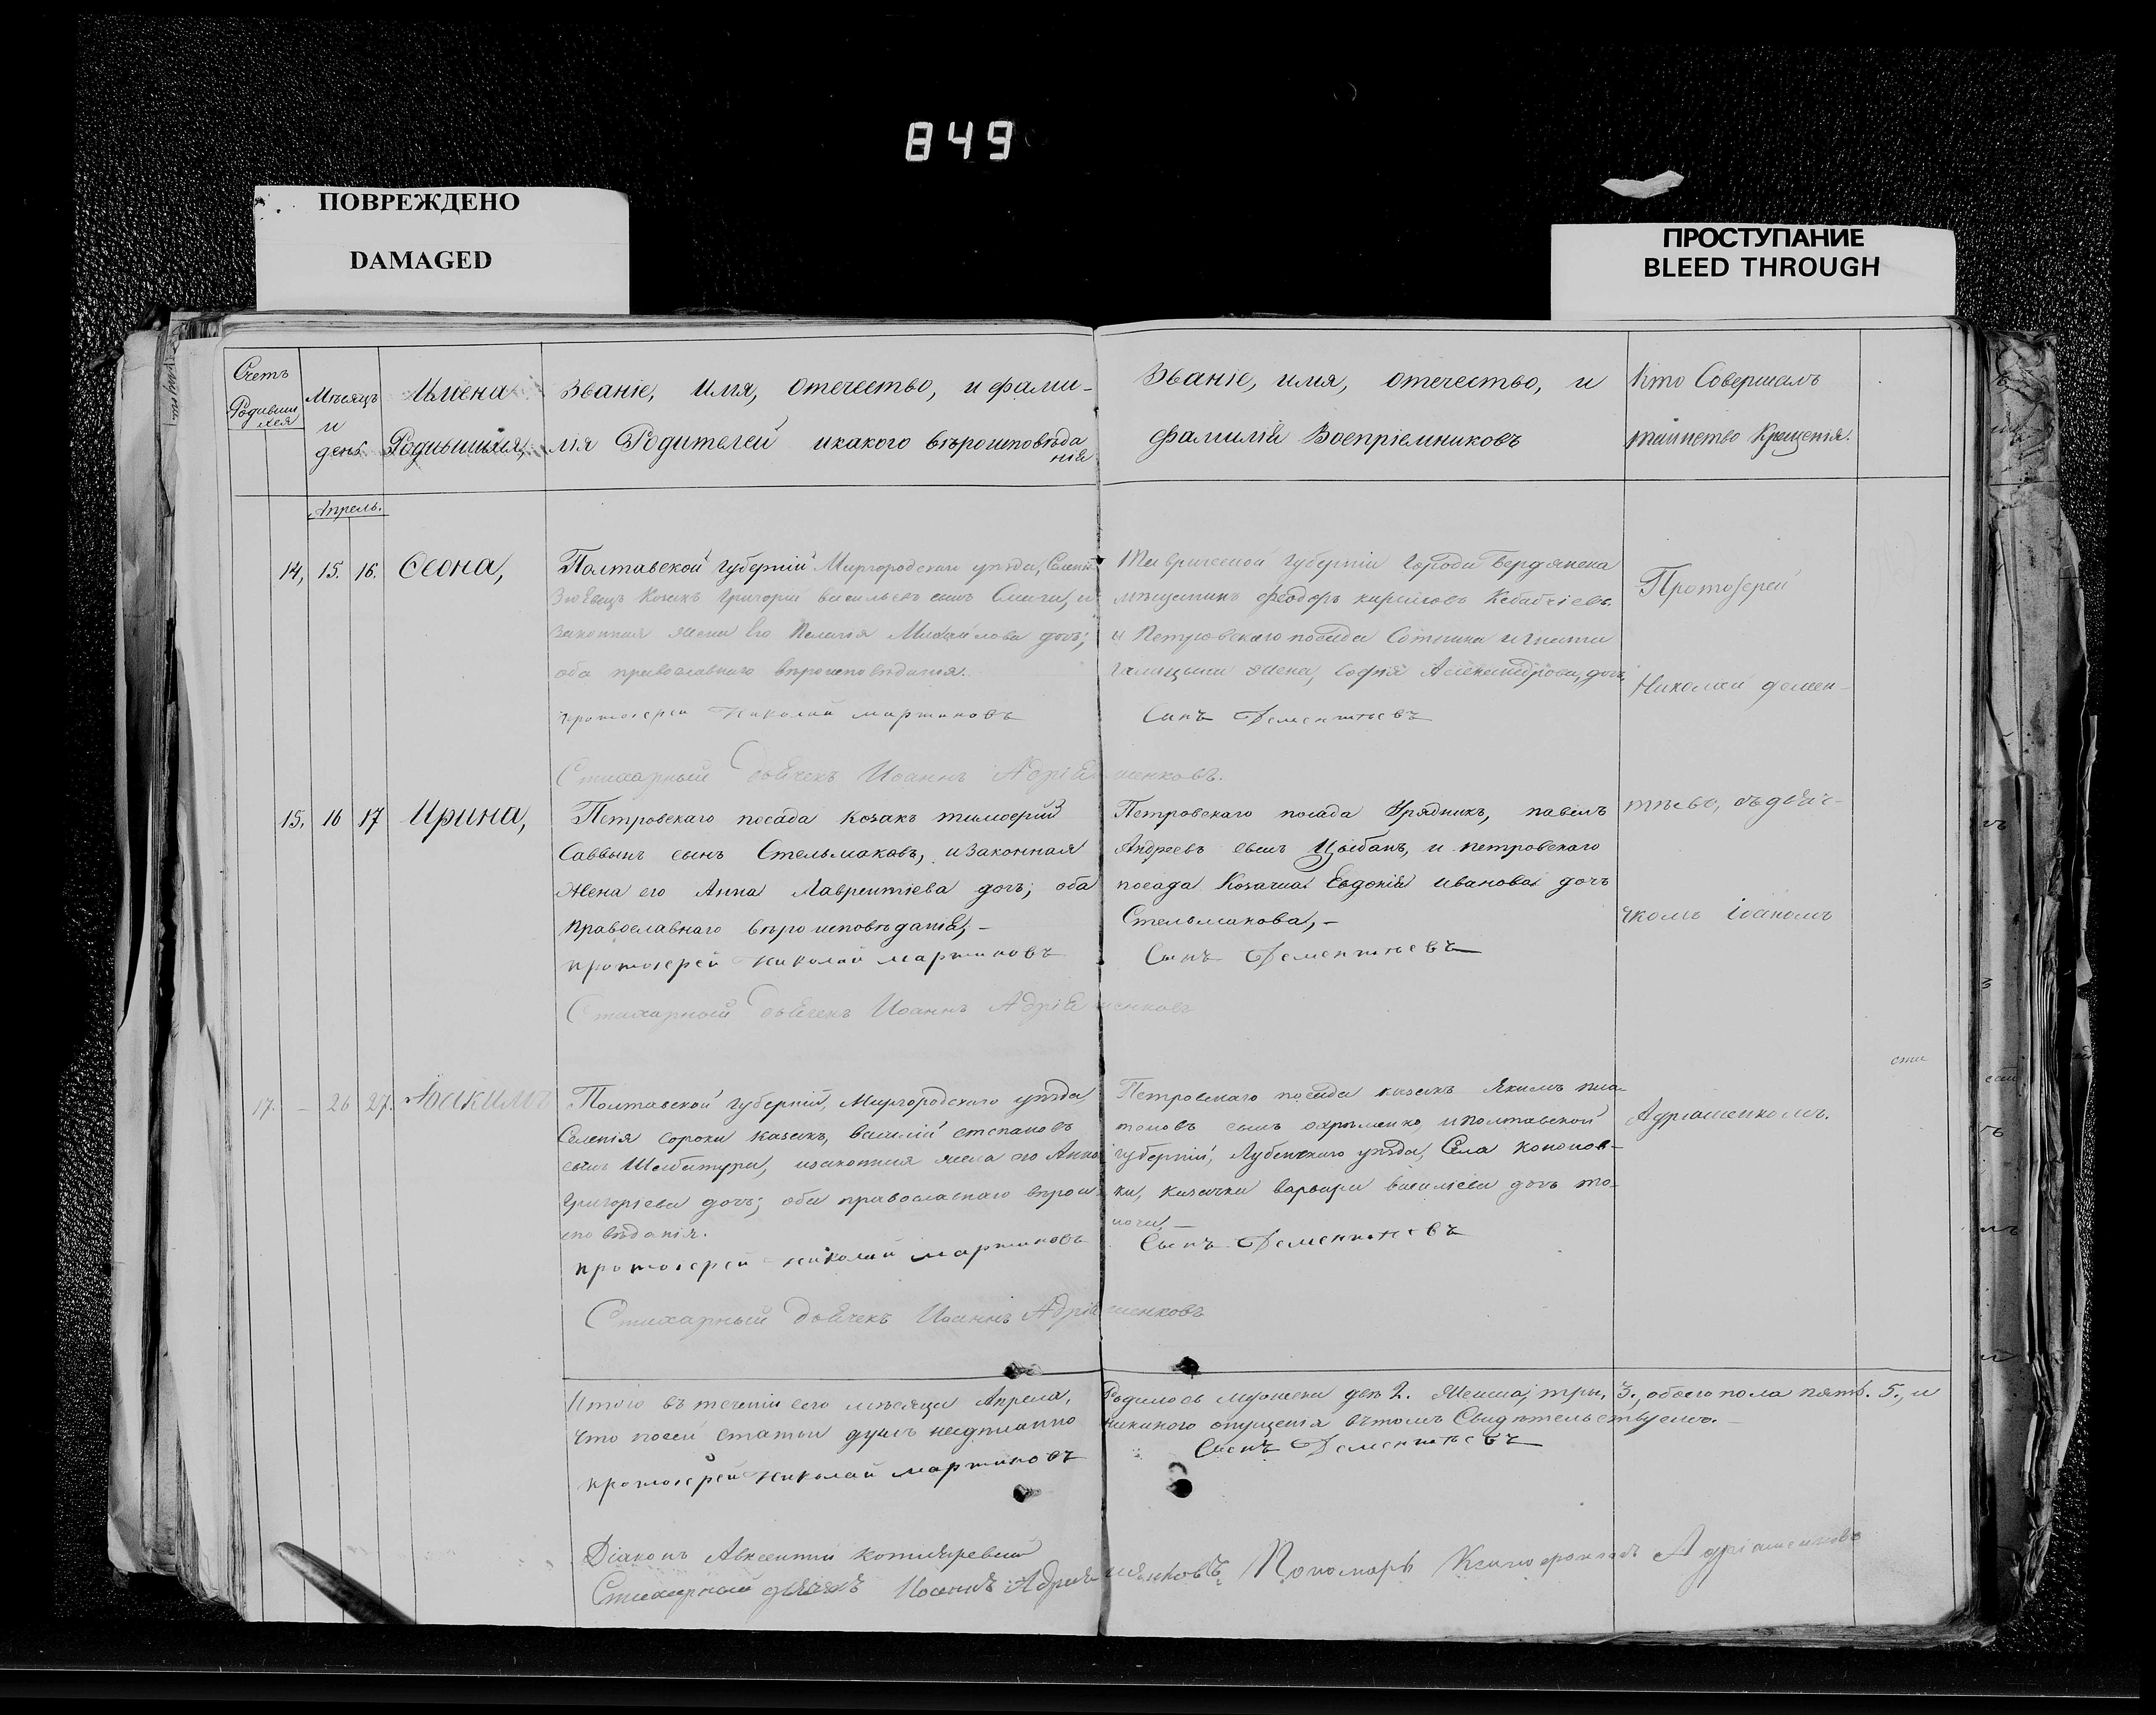 849
ПОВРЕЖДЕНО
DAMAGED
ПРОСТУПАНИЕ
BLEED THROUGH
Счетъ
Родивши
хся
Мѣсяцъ
и
день
Имена
Родившихся,
Званіе, Имя, Отечество, и фами-
лія Родителей и какого вѣроисповѣда
нія
Званіе, имя, отечество, и
фамилія Воспріемниковъ
Кто Совершалъ
таинство Крещенія.
Апрель.
14, 15. 16. Ѳеона,
Полтавской губерніи Миргородскаго уѣзда,
Козакъ Григорій Васильевъ сынъ и
Законная жена Его Пелагія Михайлова дочь;
оба православнаго вѣроисповѣданія.
протоіерей Николай мартиновъ
Стихарный дьячекъ Иоаннъ Адріяшенковъ.
Таврической губерніи города Бердянска
мѣщанинъ Феодоръ
и Петровскаго посада Сотника игната
жена, Софія Александрова, дочь
Сынъ Дементьевъ
Протоіерей
Николай демен-
15, 16 17 Ирина,
Петровскаго посада козакъ тимоѳей
Саввинъ сынъ Стельмаковъ, и Законная
жена его Анна Лаврентіева дочь; оба
православнаго вѣроисповѣданія, -
протоіерей Николай мартиновъ
Стихарный дьячекъ Иоаннъ Адріяшенковъ
Петровскаго посада Урядникъ, павелъ
Андреевъ сынъ Цыбань, и петровскаго
посада Козачка Евдокія иванова дочь
Стельмакова, -
Сынъ Дементьевъ
тьевъ, съ дьяч-
комъ іоаномъ
17. - 26 27. Іоакимъ
Полтавской губерніи, Миргородскаго уѣзда
Селенія сороки казакъ, василій степановъ
сынъ Шембатура, и законная жена его Анна
Григоріева дочь; оба православнаго вѣрои
споведанія.
протоіерей Николай мартиновъ
Стихарный дьячекъ Иоаннъ Адріяшенковъ
Петровскаго посада казакъ Якимъ пла-
тоновъ сынъ охрименко, и полтавской
губерніи, Лубенскаго уѣзда, Села кононов-
ки, казачка варвара василіева дочь
Сынъ Дементьевъ
Адріашенкомъ.
Итого въ теченіи сего мѣсяца Апреля, Родилось мужеска два 2. Женска, три, 3., обоего пола пять. 5., и
что посей статьи душъ никакого опущенія вътомъ Свидѣтельствуемъ. -
протоіерей Николай мартиновъ Сынъ Дементьевъ
Діаконъ Авксентий котляревский
Стихарный дьячекъ Иоаннъ Адріяшенковъ Пономарь Ксенофонтъ Адріашенковъ